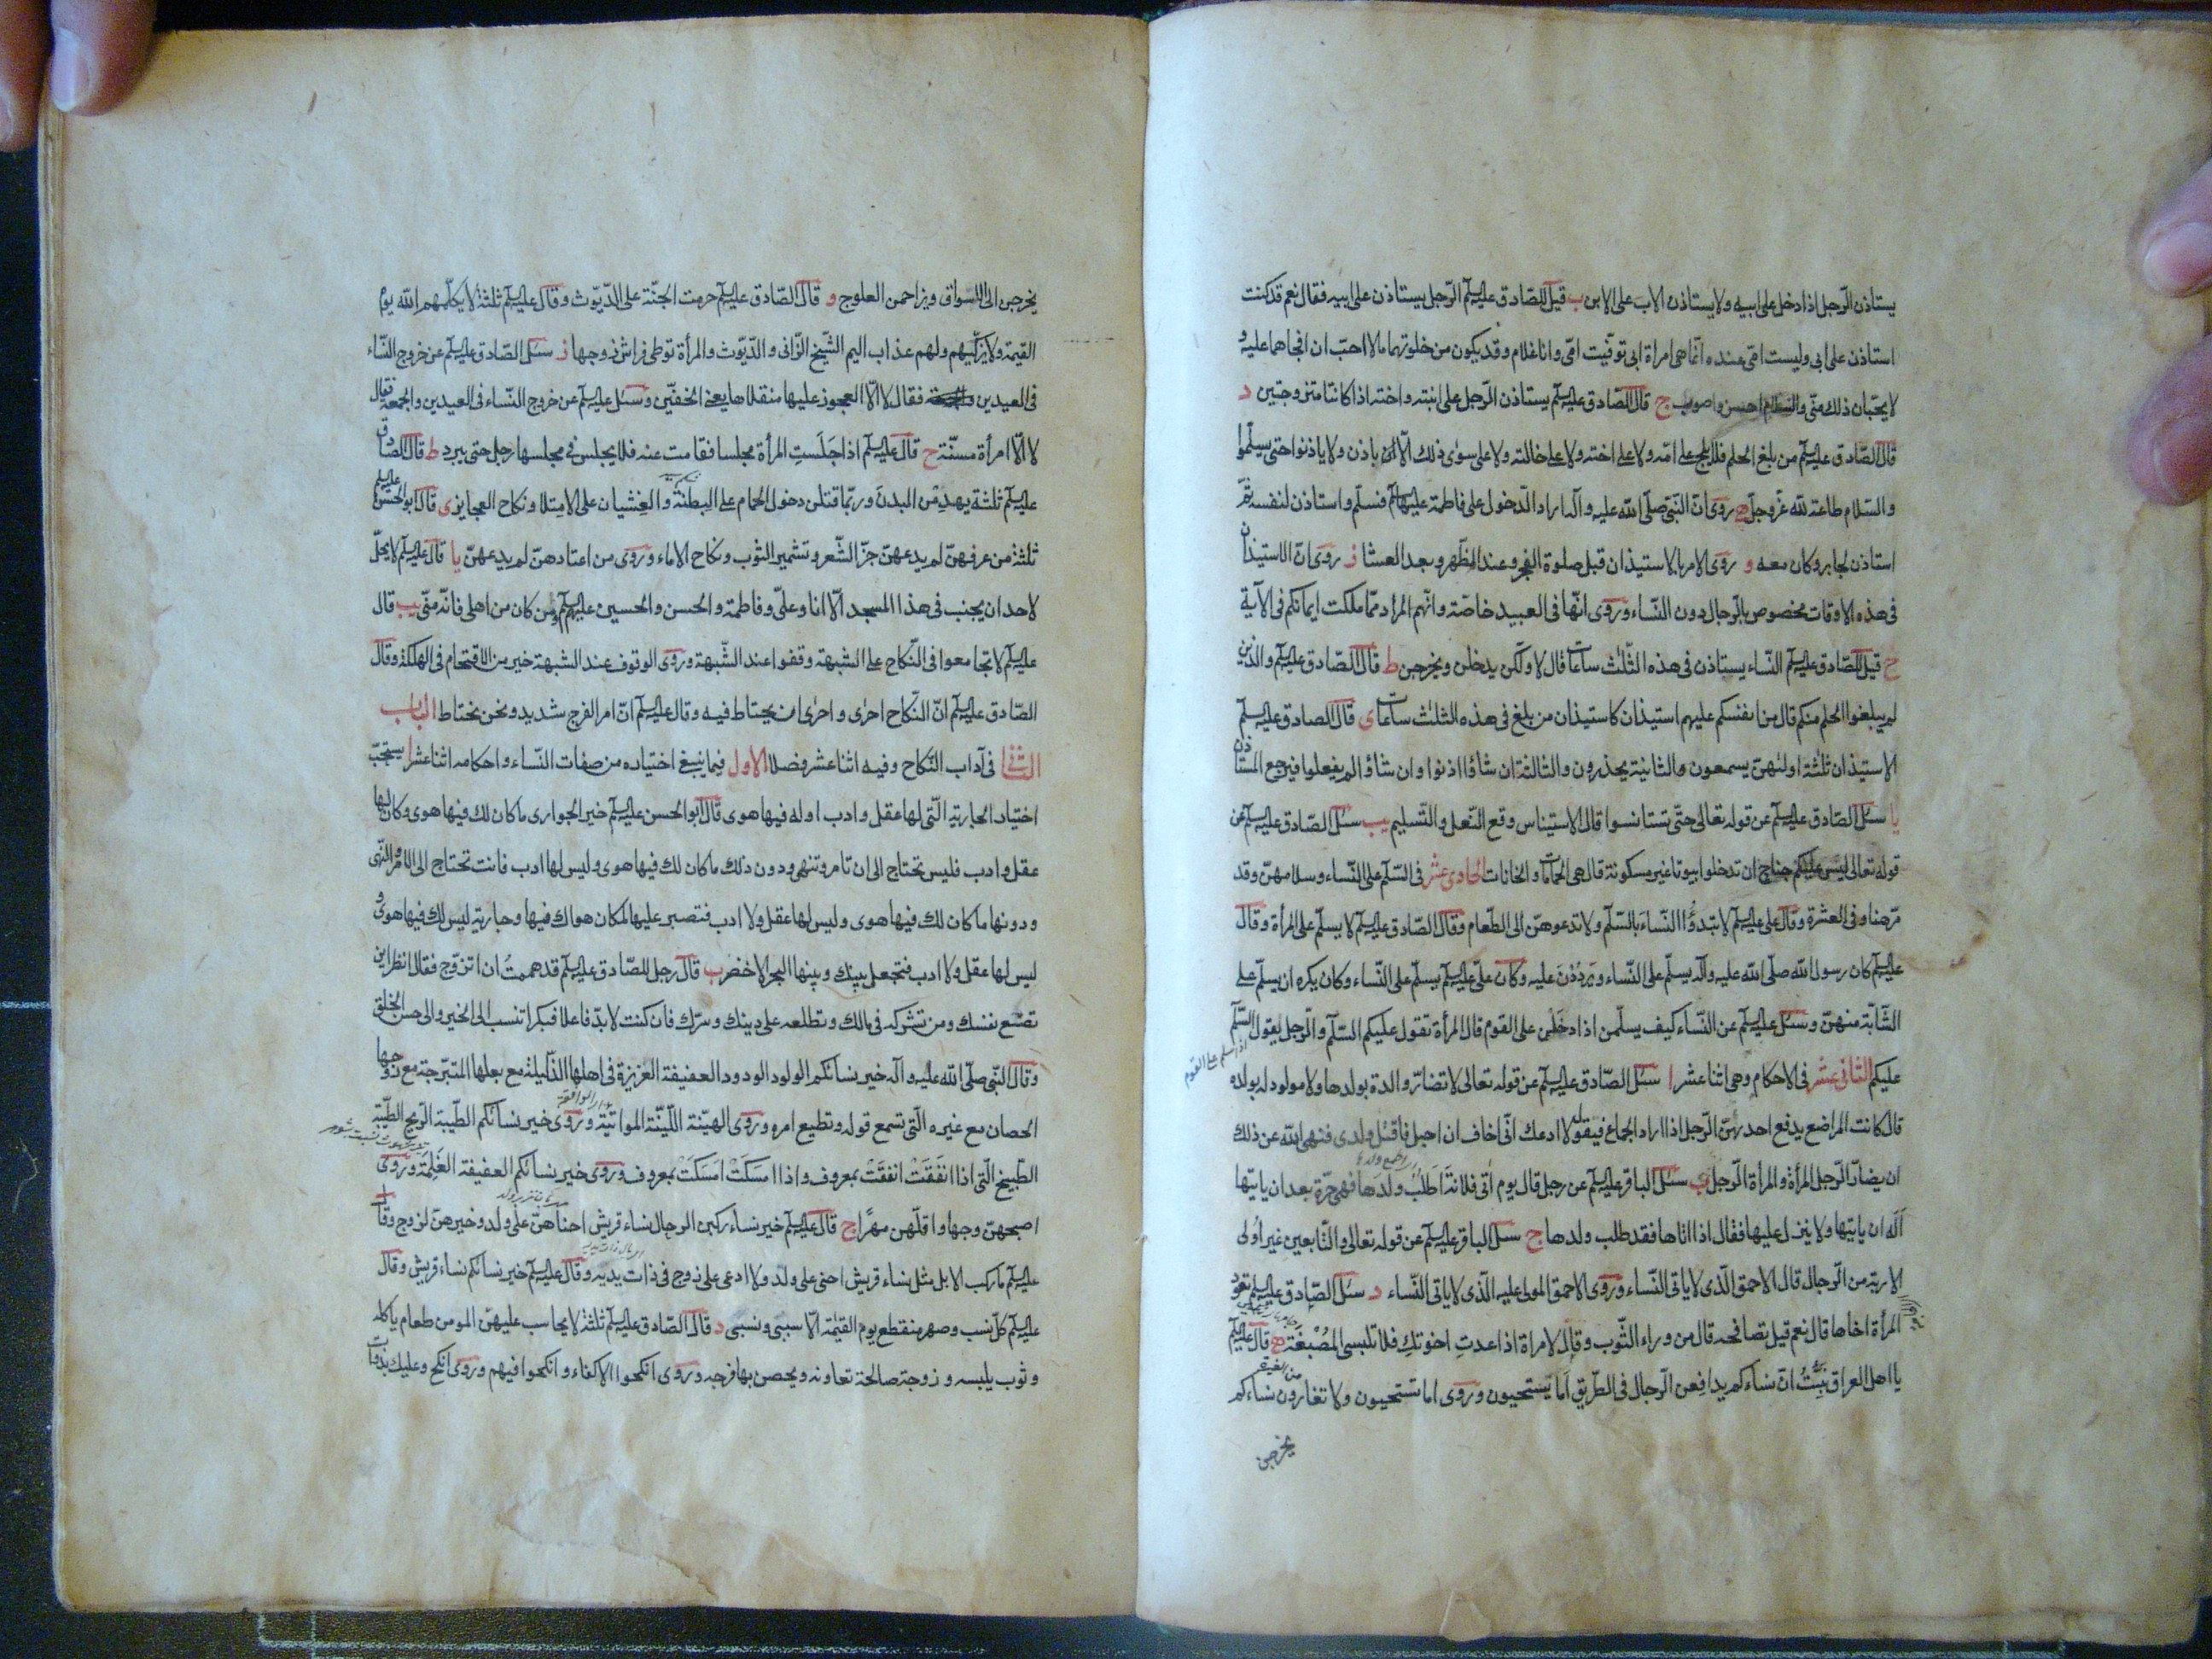 يستاذن الرّجل اذا دخل على ابيه ولا يستاذن الاب على الابن ب قيل للصّادق عليه السلم الرّجل يستاذن على ابيه فقال نعم قد كنت
استاذن على ابى وليست امّى عنده انّما هى امراة ابى توفّيت امّى وانا غلام وقد يكون من خلوتهما ما لا احبّ ان افجاهما عليه و
لا يحبّان ذلك منّى والسلام احسن واصوب ج قال الصّادق عليه السلم يستاذن الرّجل على ابنته واخته اذا كانتا متزوجتين د
قال الصّادق عليه السلم من بلغ الحلم فلا يلج على امّه ولا على اخته ولا على خالته ولا على سوى ذلك الّا باذن ولا ياذنوا حتى يسلّموا
والسّلام طاعة لله عزّوجلّ ه روى انّ النّبى صلّى الله عليه وآله اراد الدّخول على فاطمة عليها السلم فسلّم واستاذن لنفسه ثمّ
استاذن لجابر وكان معه و روى الامر بالاستيذان قبل صلوة الفجر وعند الظّهر وبعد العشا ز روى انّ الاستيذان
فى هذه الاوقات مخصوص بالرّجال دون النّساء وروى انّها فى العبيد خاصّة وانّهم المراد ممّا ملكت ايمانكم فى الآية
ح قيل للصّادق عليه السلم النّساء يستاذن فى هذه الثّلث ساعات قال لا ولكن يدخلن ويخرجن ط قال الصّادق عليه السلم والذين
لم يبلغوا الحلم منكم قال من انفسكم عليهم استيذان كاستيذان من بلغ فى هذه الثلث ساعات ى قال الصادق عليه السلم
الاستيذان ثلثة اولهنّ يسمعون والثانية يحذرون والثالثة ان شاؤا اذنوا وان شاؤا لم يفعلوا فيرجع المستاذن
يا سئل الصّادق عليه السلم عن قوله تعالى حتّى تستانسوا قال الاستيناس وقع النّعل والتّسليم يب سئل الصّادق عليه السلم عن
قوله تعالى ليس عليكم جناح ان تدخلوا بيوتا غير مسكونة قال هى الحمامات والخانات الحادى عشر فى السّلم على النّساء وسلامهنّ وقد
مرّ هنا وفى العشرة وقال على عليه السلم لا تبدؤا النّساء بالسّلم ولا تدعوهنّ الى الطّعام وقال الصّادق عليه السلم لا يسلّم على المرأة وقال
عليه السلم كان رسول الله صلّى الله عليه وآله يسلّم على النّساء ويرددن عليه وكان علىّ عليه السلم يسلّم على النّساء وكان يكره ان يسلّم على
الشّابّة منهنّ وسئل عليه السلم عن النّساء كيف يسلّمن اذا دخلن على القوم قال المرأة تقول عليكم السّلم والرّجل يقول السّلم
اذا سلم على القوم
عليكم الثّانى عشر فى الاحكام وهى اثنا عشر ا سئل الصّادق عليه السلم عن قوله تعالى لا تضارّ والدة بولدها ولا مولود له بولده
قال كانت المراضع يدفع احديهنّ الرّجل اذا اراد الجماع فيقول لا ادعك انّى اخاف ان احبل فاقتل ولدى فنهى الله عن ذلك
ان يضارّ الرّجل المرأة والمرأة الرّجل ب سئل الباقر عليه السلم عن رجل قال يوم اتى فلانة اطلب ولدها فهى حرّة بعد ان ياتيها
أله ان ياتيها ولا ينزل عليها فقال اذا اتاها فقد طلب ولدها ج سئل الباقر عليه السلم عن قوله تعالى والتّابعين غير اولى
الاربة من الرّجال قال الاحمق الّذى لا ياتى النّساء وروى الاحمق المولى عليه الّذى لا ياتى النّساء د سئل الصّادق عليه السلم تعود
المرأة اخاها قال نعم قيل تصافحه قال من وراء الثّوب وقال لامراة اذا عدت اخوتك فلا تلبسى المصبّغة ه قال عليه السلم
يا اهل العراق نبّئت انّ نساءكم يدافعن الرّجال فى الطّريق اما تستحيون وروى اما تستحيون ولا تغارون نساءكم
يخرجن
يخرجن الى الاسواق ويزاحمن العلوج و قال الصّادق عليه السلم حرمت الجنّة على الدّيّوث وقال عليه السلم ثلثة لا يكلّمهم الله يوم
القيمة ولا يزكّيهم ولهم عذاب اليم الشّيخ الزّانى والدّيّوث والمرأة توطى فراش زوجها ز سئل الصّادق عليه السلم عن خروج النّساء
فى العيدين فقال لا الّا العجوز عليها منقلاها يعنى الخفّين وسئل عليه السلم عن خروج النّساء فى العيدين والجمعة فقال
لا الّا امرأة مسنّة ح قال عليه السلم اذا جلست المرأة مجلسا فقامت عنه فلا يجلس فى مجلسها رجل حتى يبرد ط قال الصّادق
عليه السلم ثلثة يهدمن البدن وربّما قتلن دخول الحمام على البطنة والغشيان على الامتلا ونكاح العجايز ى قال ابو الحسن عليه السلم
ثلثة من عرفهنّ لم يدعهنّ جزّ الشّعر وتشمير الثّوب ونكاح الاماء وروى من اعتادهنّ لم يدعهنّ يا قال عليه السلم لا يحلّ
لاحد ان يجنب فى هذا المسجد الّا انا وعلىّ وفاطمة والحسن والحسين عليهم السلم ومن كان من اهلى فانّه منّى يب قال
عليه السلم لا تجامعوا فى النّكاح على الشبهة وقفوا عند الشّبهة وروى الوقوف عند الشبهة خير من الاقتحام فى الهلكة وقال
الصّادق عليه السلم انّ النّكاح احرى واحرى ان يحتاط فيه وقال عليه السلم انّ امر الفرج شديد ونحن نحتاط الباب
الثانى فى آداب النّكاح وفيه اثنا عشر فصلا الاول فيما ينبغى اختياره من صفات النّساء واحكامه اثنا عشر ا يستحبّ
اختيار الجارية الّتى لها عقل وادب او له فيها هوى قال ابو الحسن عليه السلم خير الجوارى ما كان لك فيها هوى وكان لها
عقل وادب فليس تحتاج الى ان تامر وتنهى ودون ذلك ما كان لك فيها هوى وليس لها ادب فانت تحتاج الى الامر والنّهى
ودونها ما كان لك فيها هوى وليس لها عقل ولا ادب فتصبر عليها لمكان هواك فيها وجارية ليس لك فيها هوى و
ليس لها عقل ولا ادب فتجعل بينك وبينها البحر الاخضر ب قال رجل للصّادق عليه السلم قد هممت ان اتزوّج فقال انظر اين
تضع نفسك ومن تشركه فى مالك وتطلعه على دينك وسرّك فان كنت لا بدّ فاعلا فبكرا تنسب الى الخير والى حسن الخلق
وقال النّبى صلّى الله عليه وآله خير نسائكم الولود الودود العفيفة العزيزة فى اهلها الذّليلة مع بعلها المتبرّجة مع زوجها
الحصان مع غيره الّتى تسمع قوله وتطيع امره وروى الهيّنة اللّيّنة المواتية وروى خير نسائكم الطّيبة الرّيح الطّيّبة
الطّبيخ الّتى اذا انفقت انفقت بمعروف واذا امسكت امسكت بمعروف وروى خير نسائكم العفيفة الغلمة وروى
اصبحهنّ وجها واقلّهن مهرًا ج قال عليه السلم خير نساء ركبن الرحال نساء قريش احناهنّ على ولد وخيرهنّ لزوج وقال
عليه السلم ما ركب الابل مثل نساء قريش احنى على ولد ولا ادعى على زوج فى ذات يديه وقال عليه السلم خير نسائكم نساء قريش وقال
عليه السلم كلّ نسب وصهر منقطع يوم القيمة الّا سببى ونسبى د قال الصّادق عليه السلم ثلثة لا يحاسب عليهنّ المومن طعام ياكله
وثوب يلبسه وزوجة صالحة تعاونه ويحصن بها فرجه وروى انكحوا الاكفاء وانكحوا فيهم وروى انكح وعليك بذات